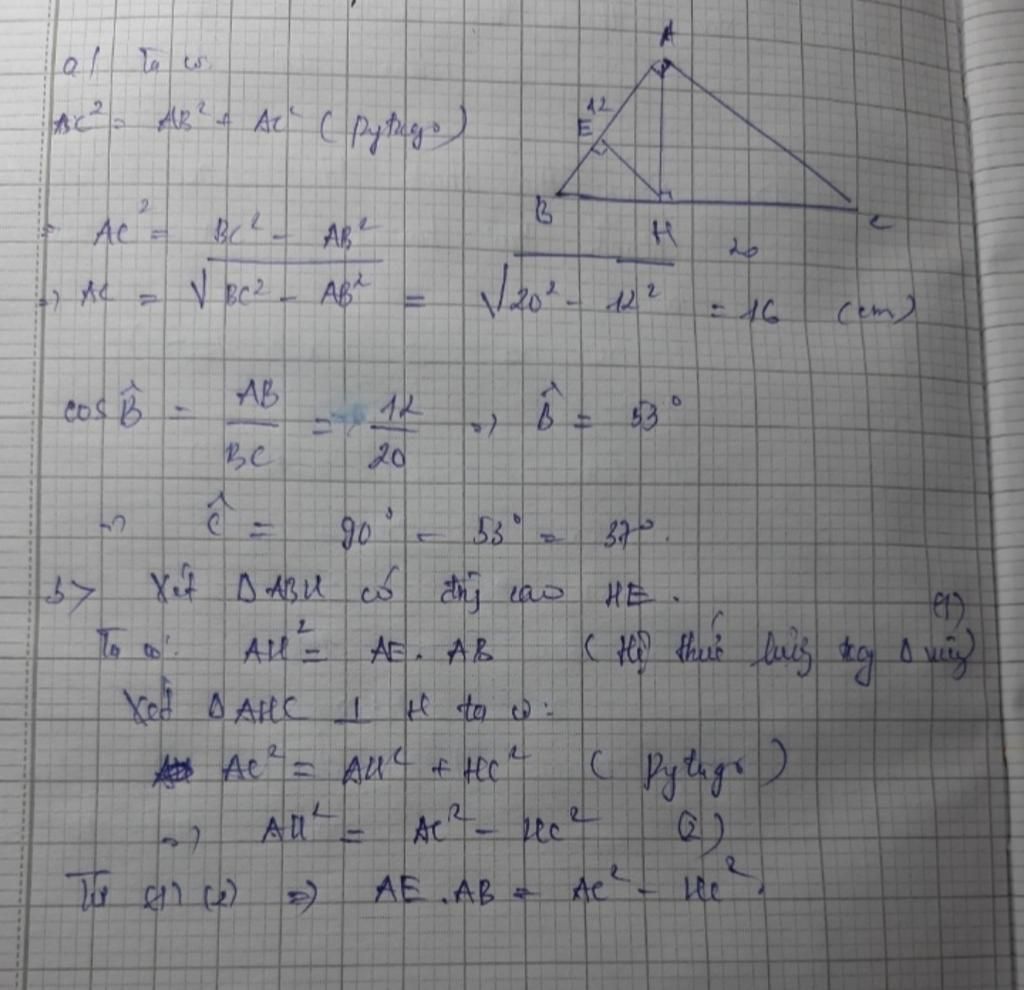 a/ Ta có
BC² = AB² + AC² (Pytago)
A
12
E
B
H
C
20
⇒ AC² = BC² - AB²
⇒ AC = √BC² - AB² = √20² - 12² = 16 (cm)
cos B̂ = AB/BC = 12/20 ⇒ B̂ = 53°
⇒ Ĉ = 90° - 53° = 37°.
b> Xét ΔABH có đg cao HE.
Ta có: AH² = AE. AB (Hệ thức lượng tg Δ vuông) (1)
Xét ΔAHC ⊥ H ta có:
AC² = AH² + HC² (Pytago)
⇒ AH² = AC² - HC² (2)
Từ (1) (2) ⇒ AE.AB = AC² - HC².